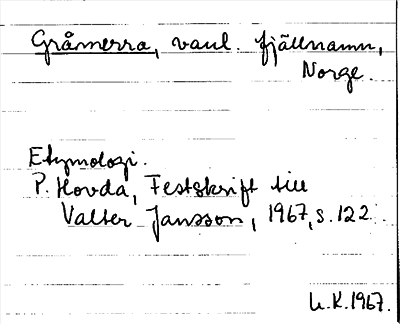 Gråmerra, vanl. fjällnamn,
Norge.
Etymologi.
P. Hovda, Festskrift till
Valter Jansson, 1967, s. 122.
U.K. 1967.